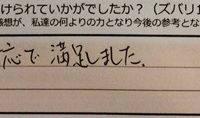 けられていかがでしたか？（ズバリ1
感想が、私達の何よりの力となり今後の参考とな
応で満足しました.